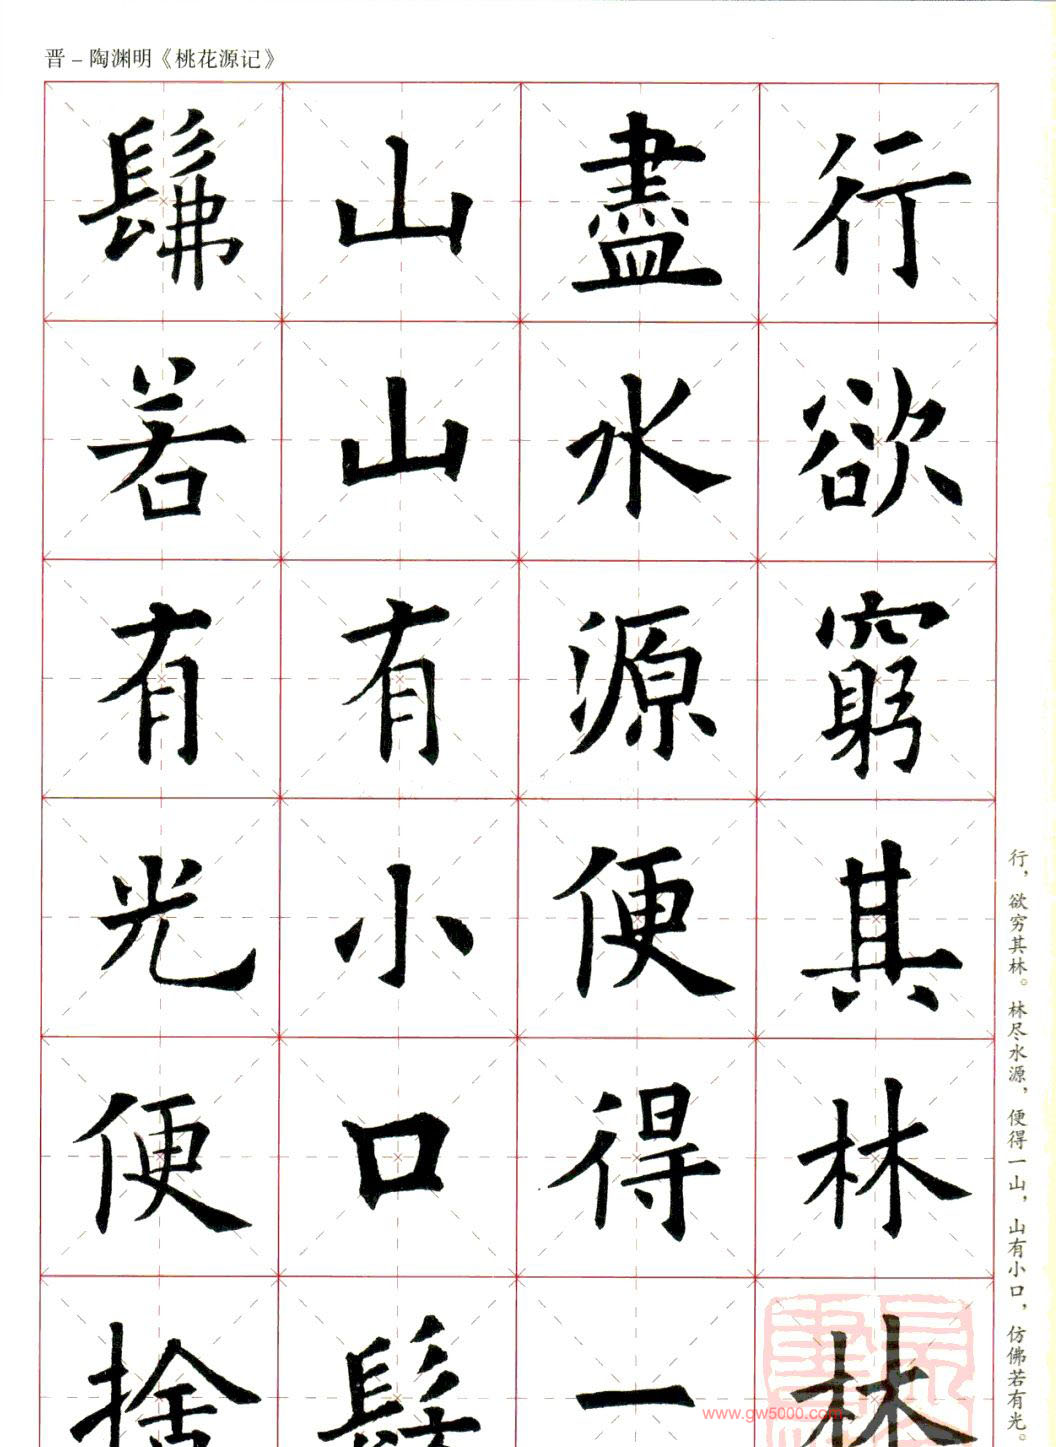 晋－陶渊明《桃花源记》
行欲窮其林林
盡水源便得一
山山有小口髣
髴若有光便捨
行，欲穷其林。林尽水源，便得一山，山有小口，仿佛若有光。
www.gw5000.com